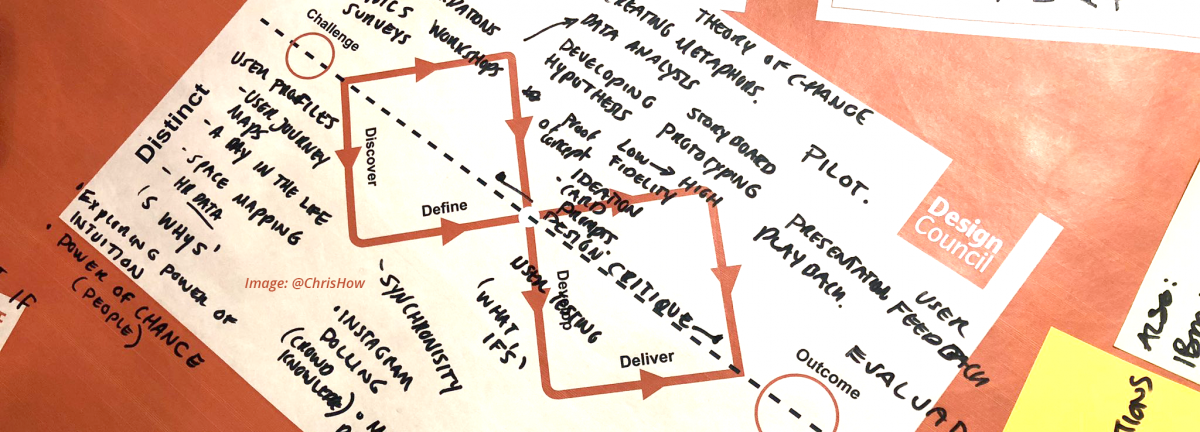 Challenge
SURVEYS
WORKSHOPS
USER PROFILES
-USER JOURNEY
MAPS
- A DAY IN THE LIFE
- SPACE MAPPING
- HR DATA
(5 WHYS'
Distinct
Discover
Define
'Exploring POWER OF
INTUITION
• POWER OF CHANCE
(PEOPLE)
IF
Image: @ChrisHow
'SYNCHRONISITY
'INSTAGRAM
POLLING
(CROWD
KNOWLEDGE)
THEORY OF CHANGE
CREATING METAPHORS.
DATA ANALYSIS
DEVELOPING
HYPOTHERS
STORYBOARD
PROTOTYPING
LOW → HIGH
FIDELITY
PROOF
OF
CONCEPT
IDEATION
CARD
PROMPT.
DESIGN CRITIQUE
PILOT.
USER TESTING
(WHAT
IFS'
Develop
Deliver
Outcome
PRESENTATION FEEDBACK
PLAYBACK.
USER
EVALUA
Design
Council
ALSO:
TIONS